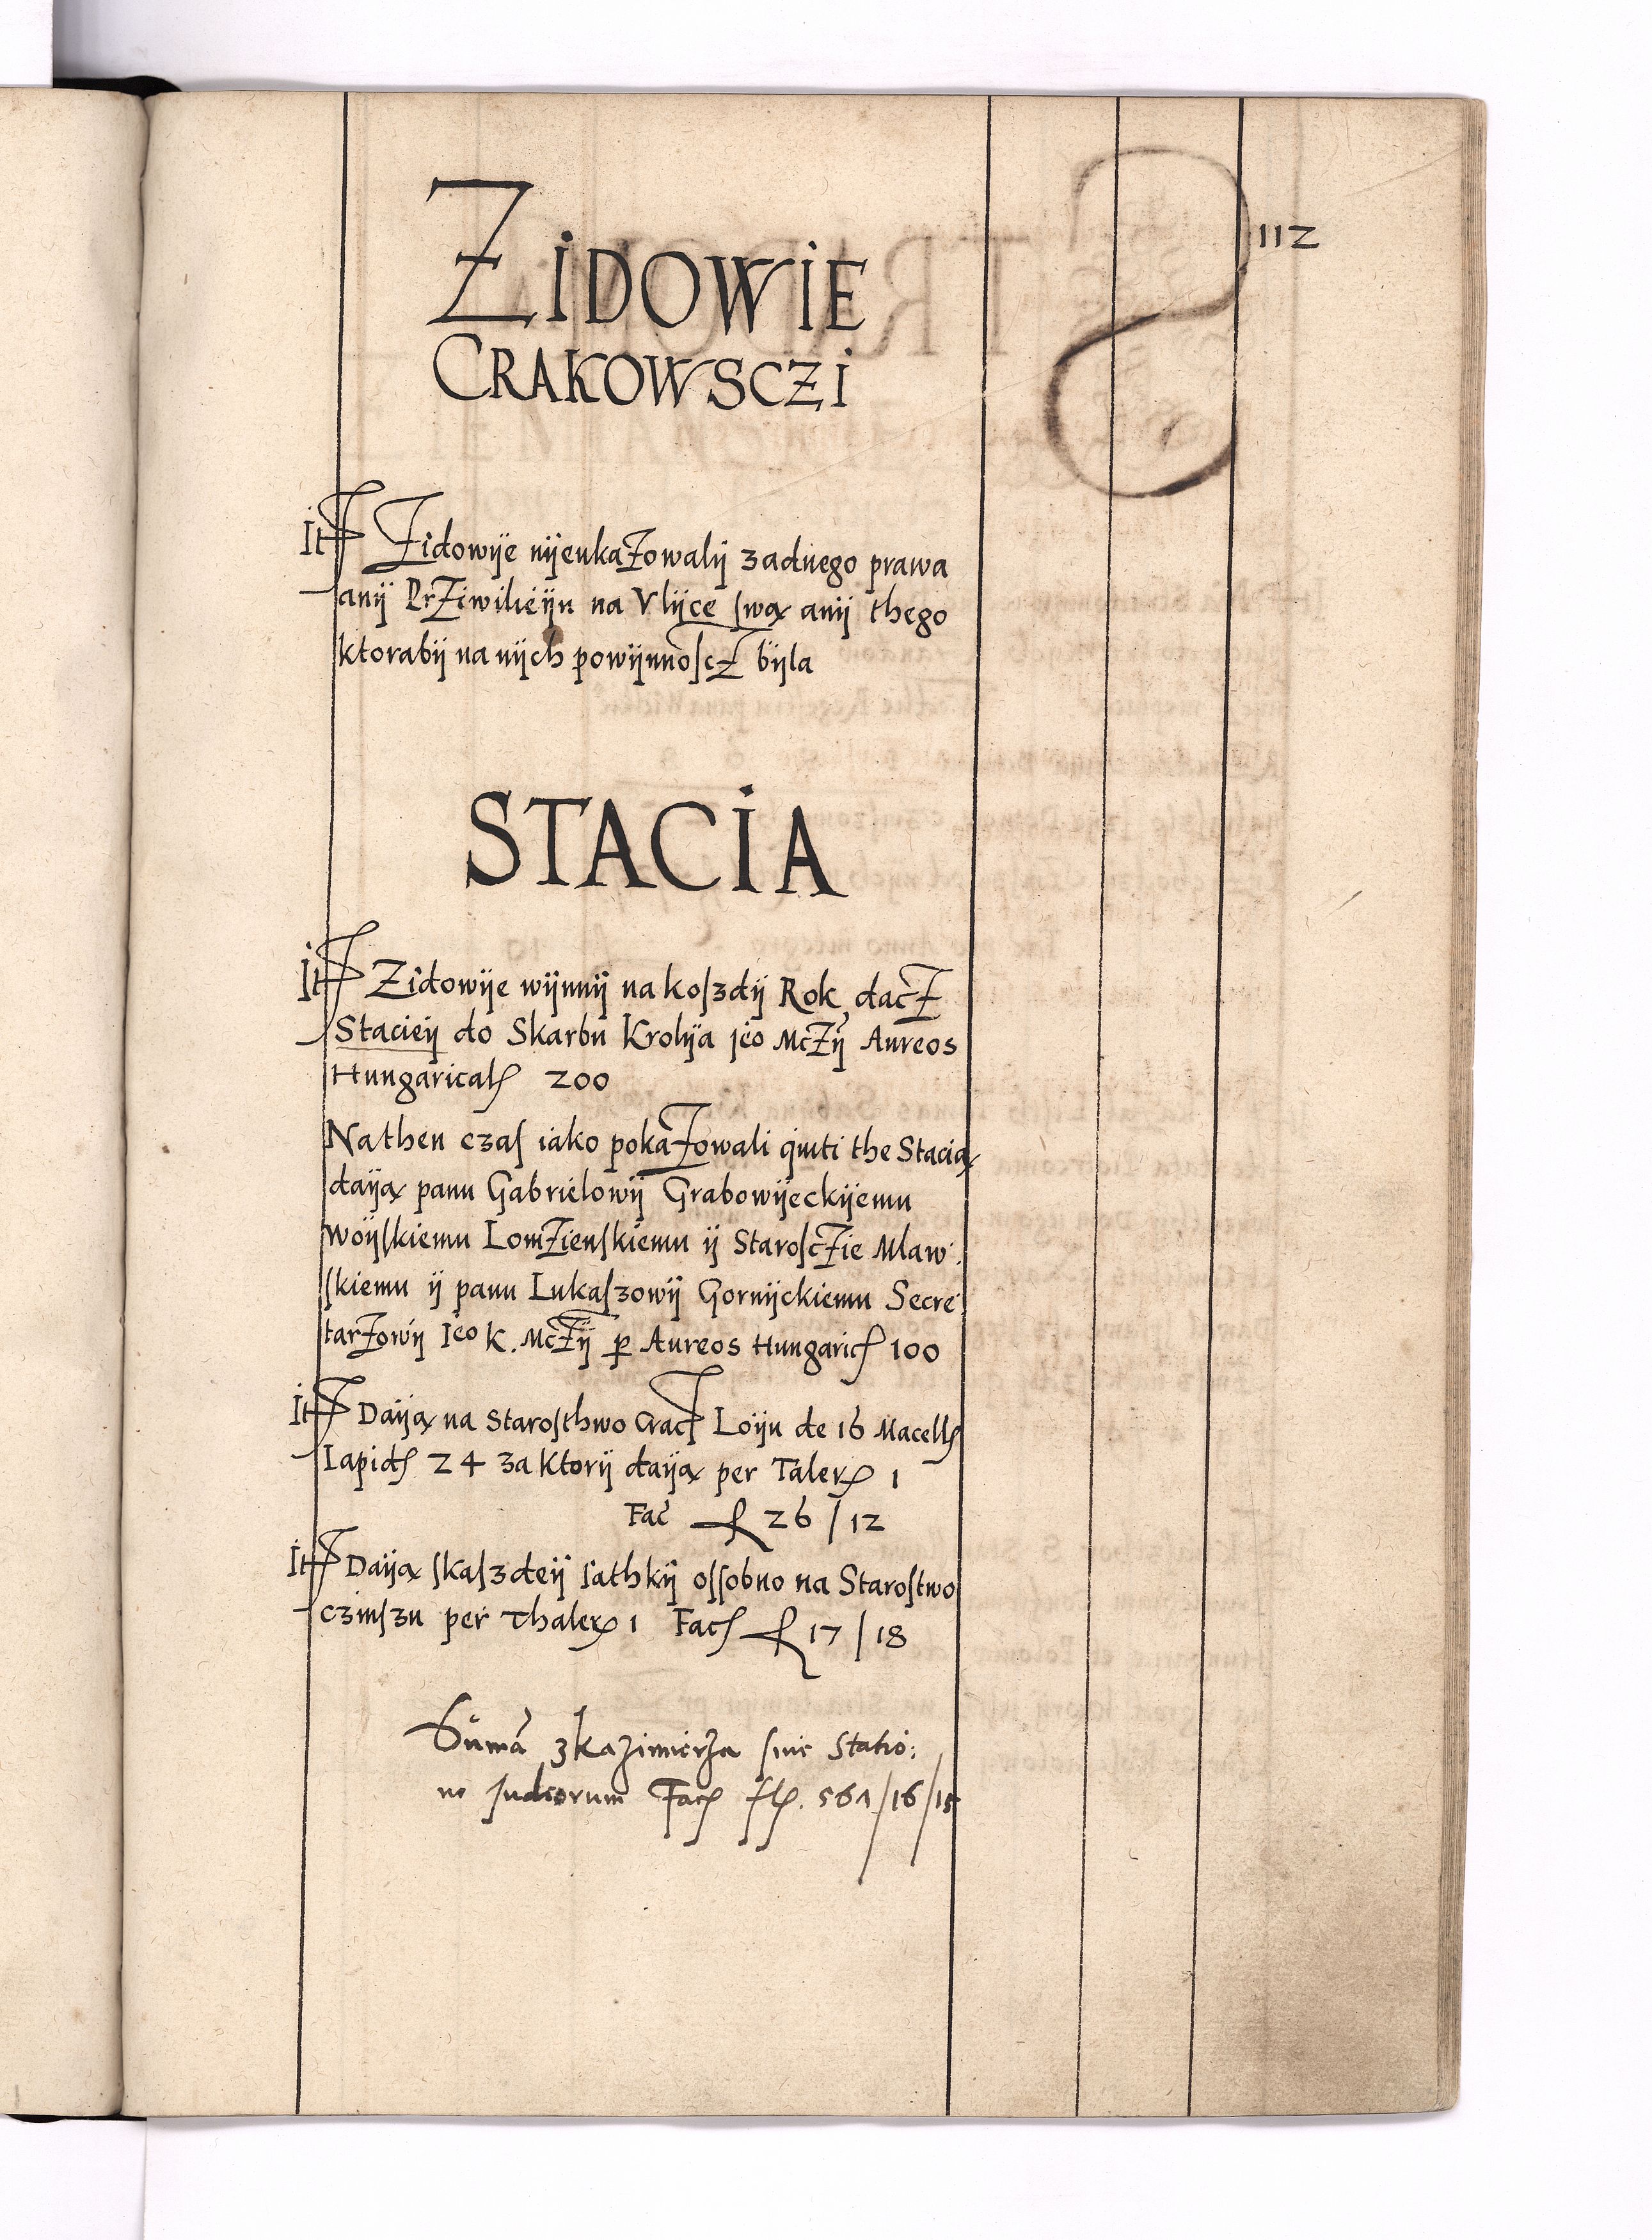 112
ZIDOWIE
CRAKOWSCZI
It Zidowÿe nÿeukazowalÿ zadnego prawa
anÿ Prziwileÿu na Vlÿce swą anÿ thego
ktorabÿ na nÿch powÿnnoscz bÿla
STACIA
It Zidowÿe wÿnnÿ na koszdÿ Rok dacz
Stacieÿ do Skarbu Krolÿa jeo Mczÿ Aureos
Hungarical 200
Nathen czas iako pokazowali quiti the Stacią
daÿą panu Gabrielowÿ Grabowÿeckÿemu
woÿskiemu Lomzienskiemu ÿ Starosczie Mlaw
skiemu ÿ panu Lukaszowÿ Gornÿckiemu Secre
tarzowÿ Jeo K. Mczÿ p Aureos Hungaric 100
It Daÿą na Starosthwo Crac Loÿu de 16 Macell
Lapid 24 za ktorÿ daÿą per Taler 1
Fac f 26 / 12
It Daÿą skaszdeÿ iathkÿ ossobno na Starostwo
czinszu per Thaler 1 Fac f 17 / 18
Suma z Kazimierza sine Statio:
ne Judeorum Fac fl. 561/16/15